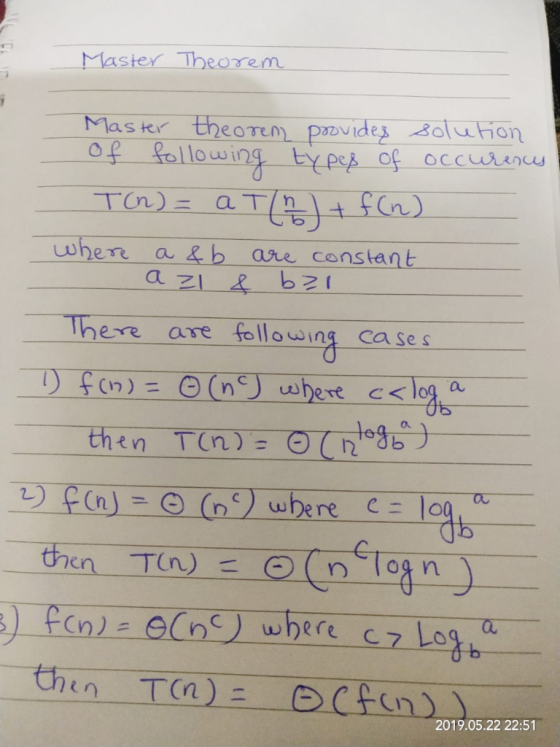 Master Theorem
Master theorem provides solution
of following types of occurences
T(n) = a T(n/b) + f(n)
where a & b are constant
a ≥ 1 & b ≥ 1
There are following cases
1) f(n) = Θ(n^c) where c < log_b a
then T(n) = Θ(n^(log_b a))
2) f(n) = Θ (n^c) where c = log_b a
then T(n) = Θ(n^c log n)
3) f(n) = Θ(n^c) where c > Log_b a
then T(n) = Θ(f(n))
2019.05.22 22:51